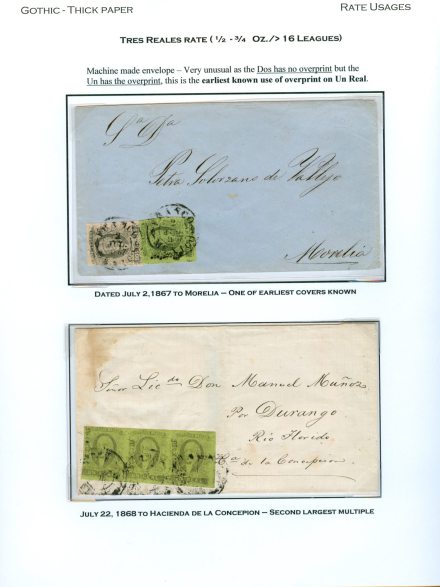 Gothic - Thick paper
Rate Usages
Tres Reales rate ( ½ - ¾ Oz./> 16 Leagues)
Machine made envelope – Very unusual as the Dos has no overprint but the
Un has the overprint, this is the earliest known use of overprint on Un Real.
Sª Dª
Petra Solorzano de Vallejo
Morelia
FRANCO
Dated July 2,1867 to Morelia – One of earliest covers known
Señor Licdo Don Manuel Muñoz
Por Durango
Rio Florido
Cª de la Concepcion
July 22, 1868 to Hacienda de la Concepion – Second largest multiple